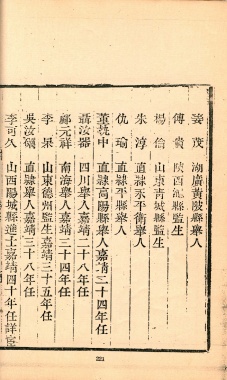 姜茂　湖廣黃陂縣舉人
傅　　陝西　縣監生
楊倫　山東青城縣監生
朱淳　直隷永平衛舉人
仇瑜　直隷　縣舉人
董　中　直隷高陽縣舉人嘉靖三十四年任
聶汝器　四川舉人嘉靖二十八年任
鄺元祥　南海舉人嘉靖三十四年任
李杲　山東德州監生嘉靖三十五年任
吳汝礪　直隷　嘉靖三十八年任
李可久　山西陽城縣進士嘉靖四十年任詳宦
221